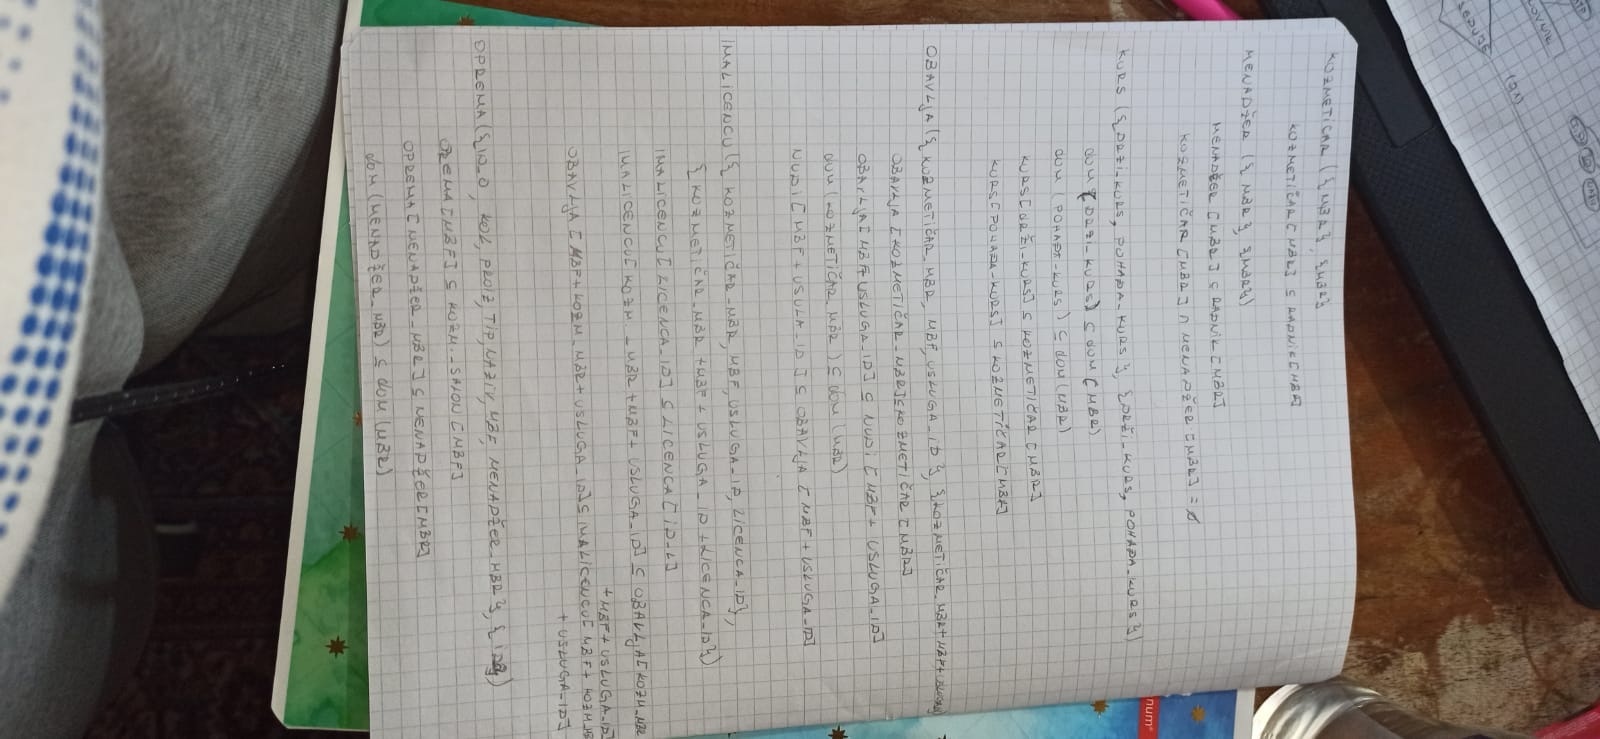 KOZMETIČAR ({MBR}, {MBR})
KOZMETIČAR [MBR] ⊆ RADNIK [MBR]
MENADŽER ({MBR}, {MBR})
MENADŽER [MBR] ⊆ RADNIK [MBR]
KOZMETIČAR [MBR] ∩ MENADŽER [MBR] = ∅
KURS ({DRŽI_KURS, POHAĐA_KURS}, {DRŽI_KURS, POHAĐA_KURS})
dom (DRŽI_KURS) ⊆ dom (MBR)
dom (POHAĐA_KURS) ⊆ dom (MBR)
KURS [DRŽI_KURS] ⊆ KOZMETIČAR [MBR]
KURS [POHAĐA_KURS] ⊆ KOZMETIČAR [MBR]
OBAVLJA ({KOZMETIČAR_MBR, MBF, USLUGA_ID}, {KOZMETIČAR_MBR+MBF+
OBAVLJA [KOZMETIČAR_MBR] ⊆ KOZMETIČAR [MBR]
OBAVLJA [MBF+USLUGA_ID] ⊆ NUDI [MBF + USLUGA_ID]
dom (KOZMETIČAR_MBR) ⊆ dom (MBR)
NUDI [MBF + USULA_ID] ⊆ OBAVLJA [MBF + USLUGA_ID]
IMALICENCU ({KOZMETIČAR_MBR, MBF, USLUGA_ID, LICENCA_ID},
{KOZMETIČAR_MBR +MBF + USLUGA_ID + LICENCA_ID})
IMALICENCU [LICENCA_ID] ⊆ LICENCA [ID_L]
IMALICENCU [KOZM._MBR +MBF+ USLUGA_ID] ⊆ OBAVLJA [KOZM_MBR
+ MBF + USLUGA_ID]
OBAVLJA [MBF+KOZM_MBR + USLUGA_ID] ⊆ IMALICENCU [MBF+ KOZM_MBR
+ USLUGA_ID]
OPREMA ({ID_O, KOL, PROIZ, TIP, NAZIV, MBF, MENADŽER_MBR},
OPREMA [MBF] ⊆ KOZM._SALON [MBF]
OPREMA [MENADŽER_MBR] ⊆ MENADŽER [MBR]
dom (MENADŽER_MBR) ⊆ dom (MBR)
num